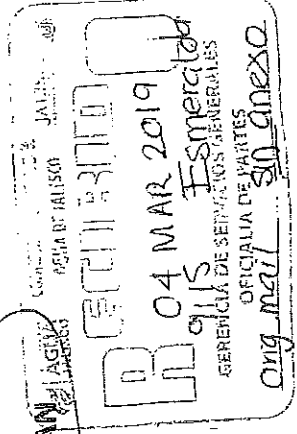 AGUA DE JALISCO
Recibido
04 MAR 2019
9:15 Esmeralda
GERENCIA DE SERVICIOS GENERALES
OFICIALIA DE PARTES
Orig mail sin anexo